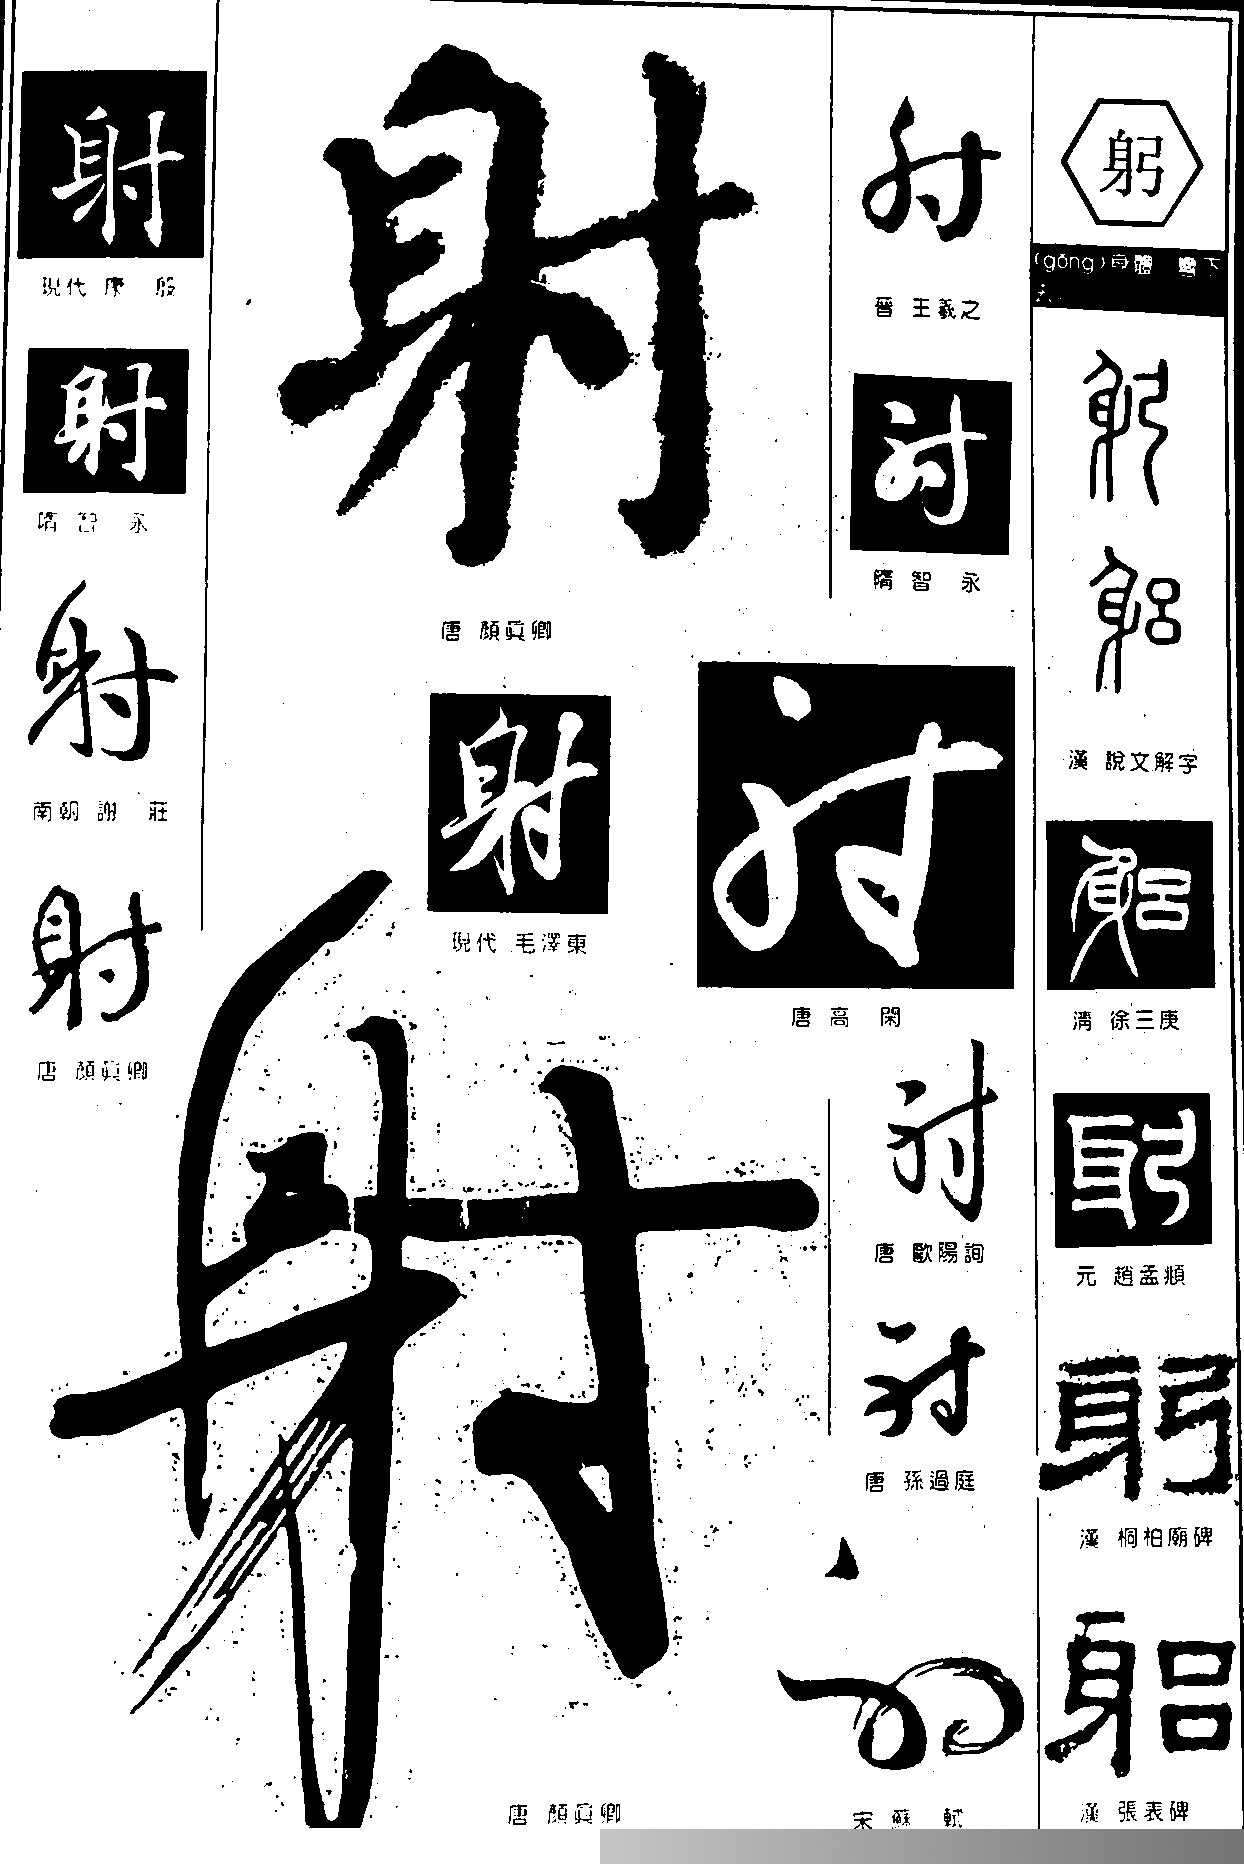 躬
(gōng)身體 彎下
漢 說文解字
清 徐三庚
元 趙孟頫
躬
漢 桐柏廟碑
躳
漢 張表碑
射
晉 王羲之
射
隋 智 永
射
唐 高 閑
射
唐 歐陽詢
射
唐 孫過庭
射
宋 蘇 軾
射
唐 顏真卿
射
現代 毛澤東
射
唐 顏真卿
射
現代 康 殷
射
隋 智 永
射
南朝 謝 莊
射
唐 顏真卿